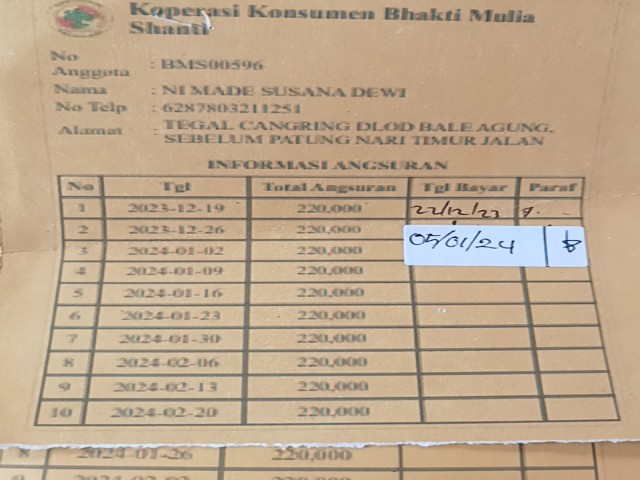 Koperasi Konsumen Bhakti Mulia
Shanti
No
Anggota : BMS00596
Nama : NI MADE SUSANA DEWI
No Telp : 6287803211251
Alamat : TEGAL CANGRING DLOD BALE AGUNG.
SEBELUM PATUNG NARI TIMUR JALAN
INFORMASI ANGSURAN
No Tgl Total Angsuran Tgl Bayar Paraf
1 2023-12-19 220,000 22/12/23
2 2023-12-26 220,000
3 2024-01-02 220,000 05/01/24
4 2024-01-09 220,000
5 2024-01-16 220,000
6 2024-01-23 220,000
7 2024-01-30 220,000
8 2024-02-06 220,000
9 2024-02-13 220,000
10 2024-02-20 220,000
8 2024-01-26 220,000